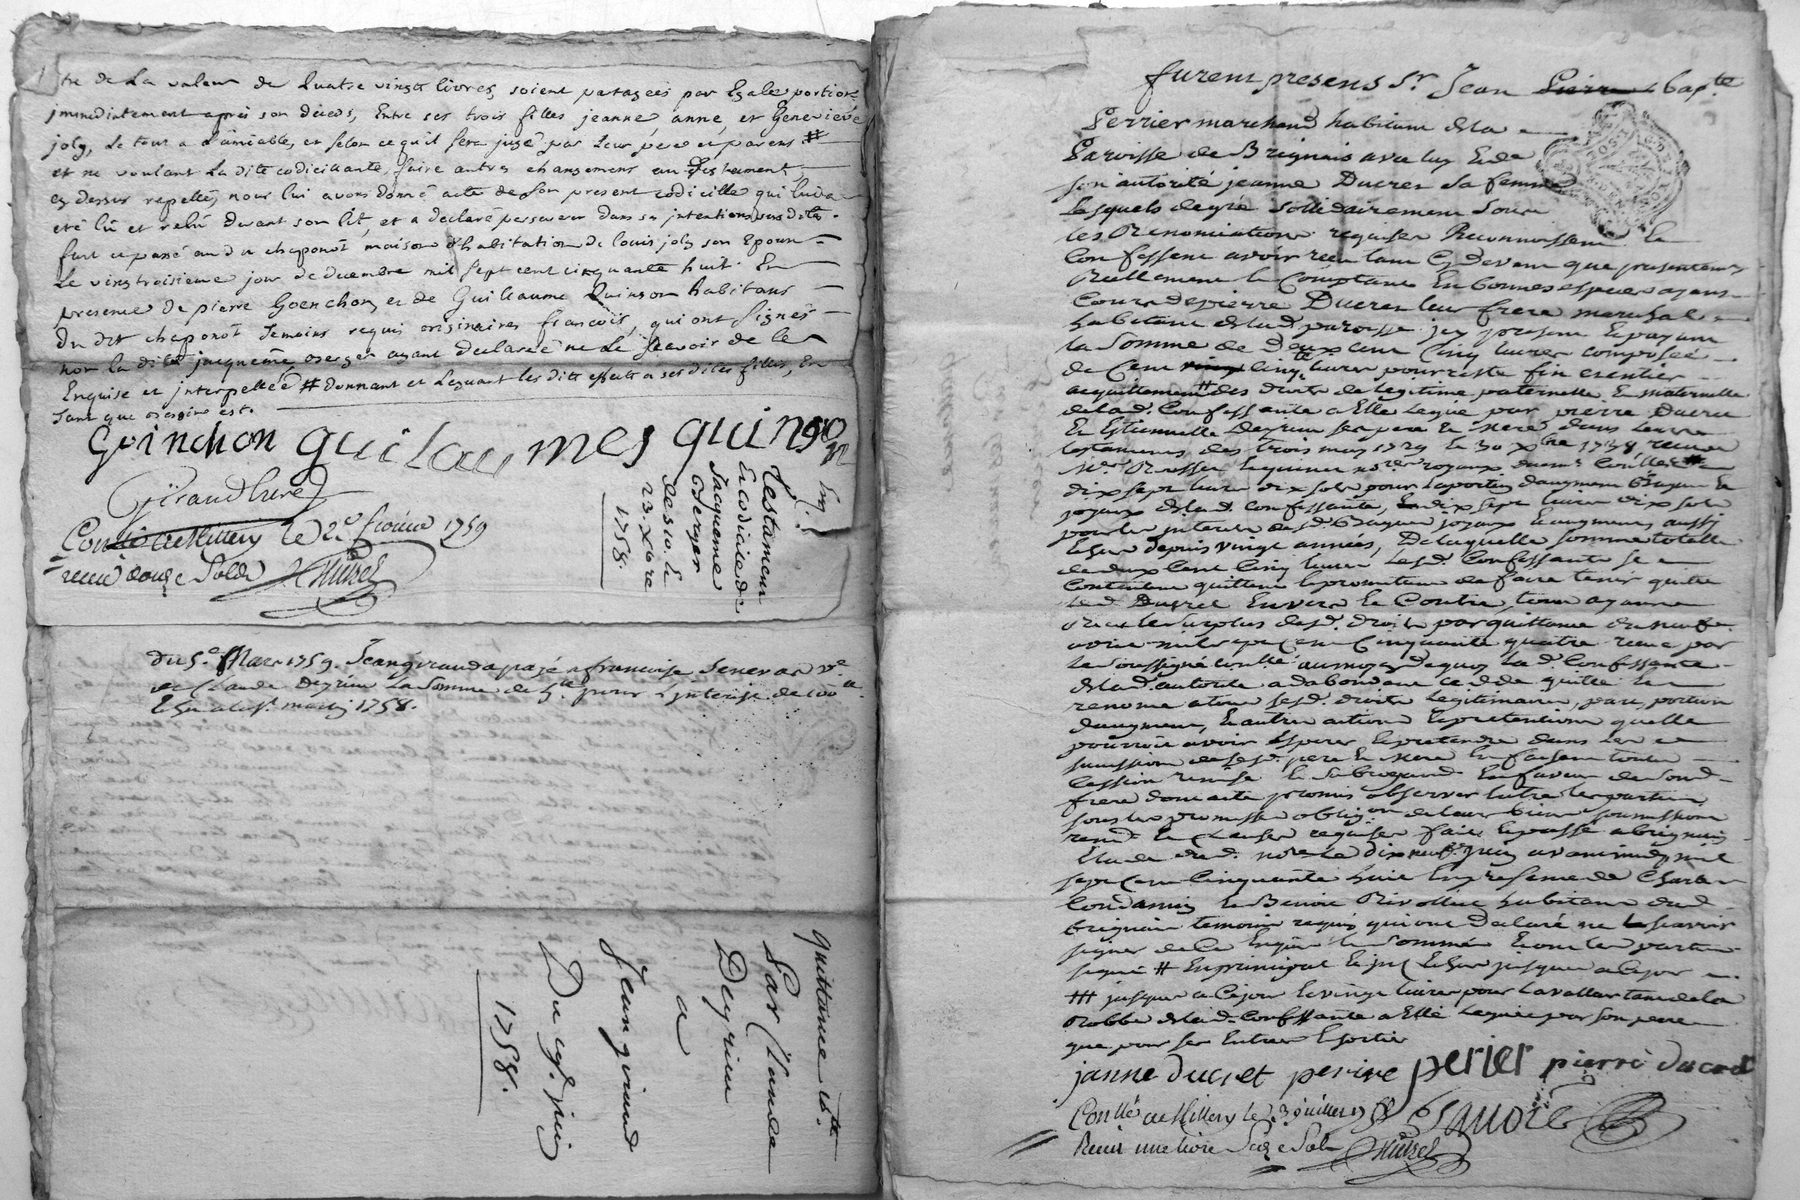 tre de La valeur de Quatre vingt livres, soient partagées par Egale portion
immediatement après son décès, Entre ses trois filles jeanne, anne, et Genevieve
joly, Le tout a L'amiable, et selon ce qu'il sera jugé par Leur pere et parens #
et ne voulant La dite codicillante, faire autres changemens au Testament,
cy dessus rapellés, nous lui avons donné acte de son present codicille qui lui a
eté lû et relû devant son lit, et a declaré perseverer dans ses intentions susdites.
fait et passé aud. chaponôt maison d'habitation de louis joly son Epoux
Le vingt troisieme jour de decembre mil sept cent cinquante huit. En
presence de pierre Goenchon et de Guillaume Quinson habitans
Du dit chaponôt temoins requis originaires françois, qui ont signés
non la dite jacquême oserger ayant declareé ne Le sçavoir de ce
Enquise et interpelleé # Donnant et Leguant les dits effets a ses dites filles, En
tant que besoin est.
Goinchon guilaumes quinson
Girand curé
Conllé a Millery le 2e fevrier 1759
receu douze Sols Huzel
Testament
Et codicile de
Jacqueme
oserger
des 10. et
23. Xbre
1758.
Du 5e. Mars 1759. Jean giraud a payé a francoise Senevas ve.
de Claude Degrieu La Somme de 5ll pour L'interest de 100ll
Echu a la St. martin 1758.
quittance
Par Claude
Degrieu
a
Jean giraud
Du juin
1758.
furent presens Sr. Jean Bapte
Perrier marchand habitant de la
Paroisse de Brignais avec luy Et de
son autorité jeanne Ducret Sa femme
Lesquels de gré Solidairement Sous
les Renonciations requises Reconnoissent Et
Confessent avoir receu tant Cy devant que presentement
Reellement Et Comptant En bonnes especes ayant
Cours de pierre Ducret leur frere marchal
habitant de lad. paroisse icy present Et payant
la Somme de Deux Cent Cinq livres composée
de Cent cinqte livres pour reste fin et entier
acquittement # des droits de Legitime paternelle Et maternelle
de lad. Confessante a Elle Legué par pierre Ducret
Et Estiennette Degrieu ses pere Et Mere dans Leurs
testaments des trois may 1729 Et 30 Xbre 1738 receus
dix sept livres dix sols pour la portion d'augment Bagues Et
joyaux de lad. Confessante, Et dix sept livres dix sols
pour les interets desd. Bagues joyaux Et augment aussi
Echus depuis vingt années, De laquelle somme totalle
de deux Cent Cinq livres Lesd. Confessants se
Contentent quittent Et promettent de faire tenir quitte
led. Ducret Envers Et Contre tous ayant
receu le surplus desd. droits par quittance du neuf
avril mil sept Cent Cinquante quatre receue par
le soussigné aumoyen de quoy La d. Confessante
de lad. autorité a d'abondant cedé quitté Et
renoncé a tous sesd. droits Legitimaires, part, portion
daugment, Et autres actions Et pretentions quelle
pourroit avoir Esperer Et pretendre dans les
succession de sesd. pere Et Mere En faisant toutte
Cession remise Et Subrogeant En faveur de Sond.
frere dont acte promis observer Entre les parties
sous les promesses obligon. de leurs biens soumissions
renond. Et Clauses requises fait Et passé a brignais
Etude dud. nore Le dix neufe. juin avant midy mil
sept Cent Cinquante huit En presence de Charles
Condamin Et Benoit Rivollet habitants dud.
brignais temoins requis qui ont Declaré ne Le scavoir
signer de Ce Enquis Et Sommé Et ont les parties
signé # En principal Et jusques a Cejour
### jusques a Cejour Et vingt livres pour La valleur tant de la
Robbe de lad. Confessante a Elle Leguée par son pere
que pour ses Entrées Et sorties
janne ducret perier pierre ducret
Conllé a Millery le 3 juillet 1758
Receu une livre Seize Sols Huzel